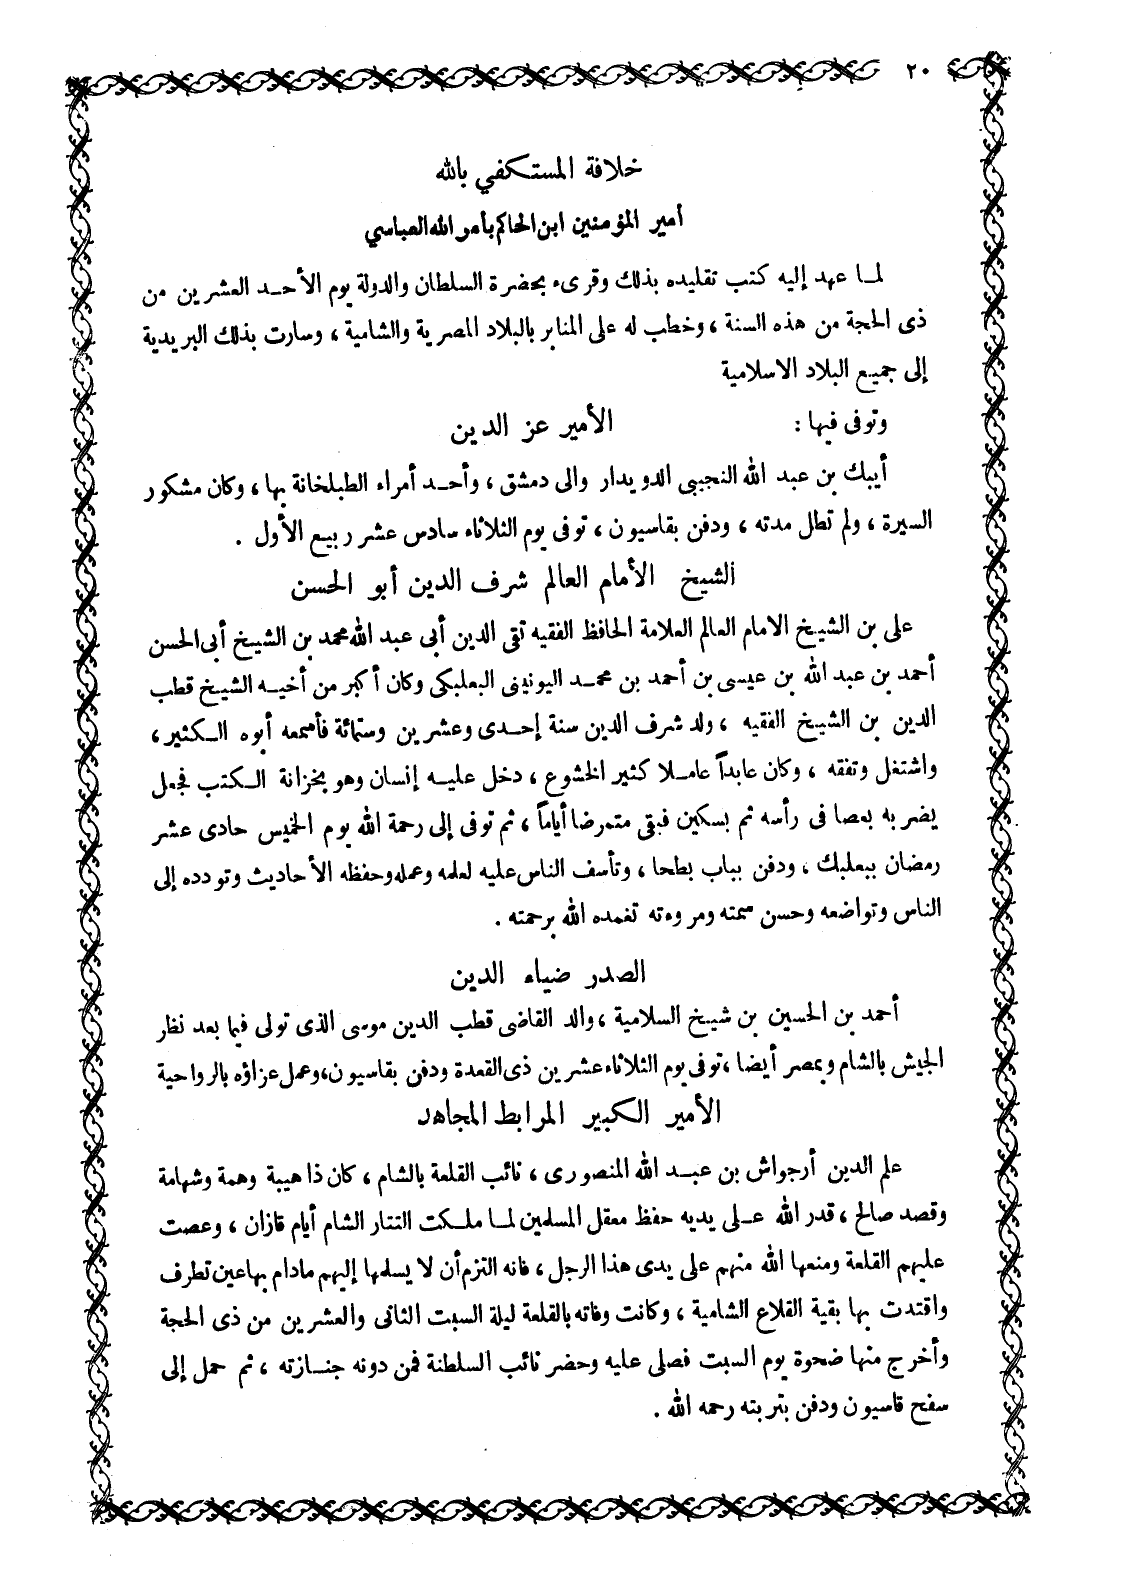 ٢٠
خلافة المستكفي بالله
أمير المؤمنين ابن الحاكم بأمر الله العباسي
لما عهد إليه كتب تقليده بذلك وقرىء بحضرة السلطان والدولة يوم الأحد العشرين من
ذى الحجة من هذه السنة ، وخطب له على المنابر بالبلاد المصرية والشامية ، وسارت بذلك البريدية
إلى جميع البلاد الاسلامية
وتوفى فيها : الأمير عز الدين
أيبك بن عبد الله النجيبى الدويدار والى دمشق ، وأحد أمراء الطبلخانة بها ، وكان مشكور
السيرة ، ولم تطل مدته ، ودفن بقاسيون ، توفى يوم الثلاثاء سادس عشر ربيع الأول .
الشيخ الأمام العالم شرف الدين أبو الحسن
على بن الشيخ الامام العالم العلامة الحافظ الفقيه تقى الدين أبى عبد الله محمد بن الشيخ أبى الحسن
أحمد بن عبد الله بن عيسى بن أحمد بن محمد اليونينى البعلبكى وكان أكبر من أخيه الشيخ قطب
الدين بن الشيخ الفقيه ، ولد شرف الدين سنة إحدى وعشرين وستمائة فأسمعه أبوه الكثير ،
واشتغل وتفقه ، وكان عابداً عاملا كثير الخشوع ، دخل عليه إنسان وهو بخزانة الكتب فجعل
يضربه بعصا فى رأسه ثم بسكين فبقى متمرضا أياماً ، ثم توفى إلى رحمة الله يوم الخميس حادى عشر
رمضان ببعلبك ، ودفن بباب بطحا ، وتأسف الناس عليه لعلمه وعمله وحفظه الأحاديث وتودده إلى
الناس وتواضعه وحسن سمته ومروءته تغمده الله برحمته .
الصدر ضياء الدين
أحمد بن الحسين بن شيخ السلامية ، والد القاضى قطب الدين موسى الذى تولى فيما بعد نظر
الجيش بالشام وبمصر أيضا ، توفى يوم الثلاثاء عشرين ذى القعدة ودفن بقاسيون ، وعمل عزاؤه بالرواحية
الأمير الكبير المرابط المجاهد
علم الدين أرجواش بن عبد الله المنصورى ، نائب القلعة بالشام ، كان ذا هيبة وهمة وشهامة
وقصد صالح ، قدر الله على يديه حفظ معقل المسلمين لما ملكت التتار الشام أيام قازان ، وعصت
عليهم القلعة ومنعها الله منهم على يدى هذا الرجل ، فانه التزم أن لا يسلمها إليهم مادام بها عين تطرف
واقتدت بها بقية القلاع الشامية ، وكانت وفاته بالقلعة ليلة السبت الثانى والعشرين من ذى الحجة
وأخرج منها ضحوة يوم السبت فصلى عليه وحضر نائب السلطنة فمن دونه جنازته ، ثم حمل إلى
سفح قاسيون ودفن بتربته رحمه الله .